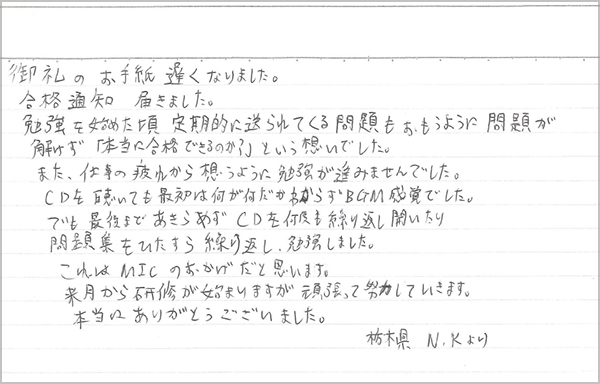 御礼の お手紙 遅くなりました。
合格通知 届きました。
勉強を始めた頃 定期的に送られてくる問題も おもうように 問題が
解けず「本当に合格できるのか?」という想いでした。
また、仕事の疲れから 想うように 勉強が進みませんでした。
CDを聴いても最初は何が何だかわからずBGM感覚でした。
でも最後まであきらめずCDを何度も繰り返し聞いたり
問題集をひたすら繰り返し、勉強しました。
これは MIC のおかげだと思います。
来月から研修が始まりますが 頑張って努力していきます。
本当に ありがとうございました。
栃木県 N.Kより